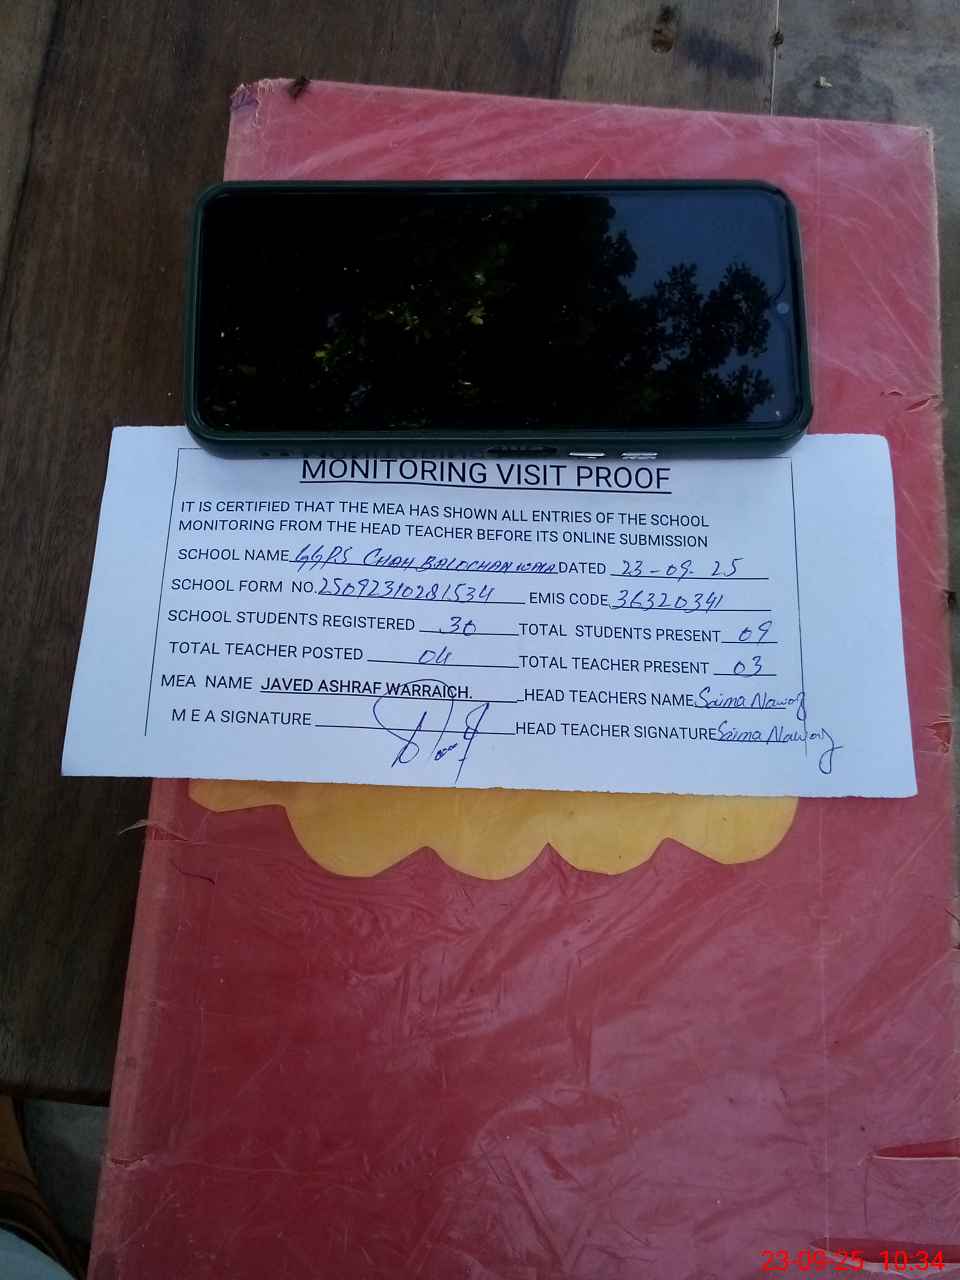 MONITORING VISIT PROOF
IT IS CERTIFIED THAT THE MEA HAS SHOWN ALL ENTRIES OF THE SCHOOL
MONITORING FROM THE HEAD TEACHER BEFORE ITS ONLINE SUBMISSION
SCHOOL NAME GGPS CHAH BALOCHAN WALA DATED 23-09-25
SCHOOL FORM NO. 25092310281534 EMIS CODE 36320341
SCHOOL STUDENTS REGISTERED 30 TOTAL STUDENTS PRESENT 09
TOTAL TEACHER POSTED 04 TOTAL TEACHER PRESENT 03
MEA NAME JAVED ASHRAF WARRAICH. HEAD TEACHERS NAME Saima Nawaz
M E A SIGNATURE HEAD TEACHER SIGNATURE Saima Nawaz
23-09-25 10:34